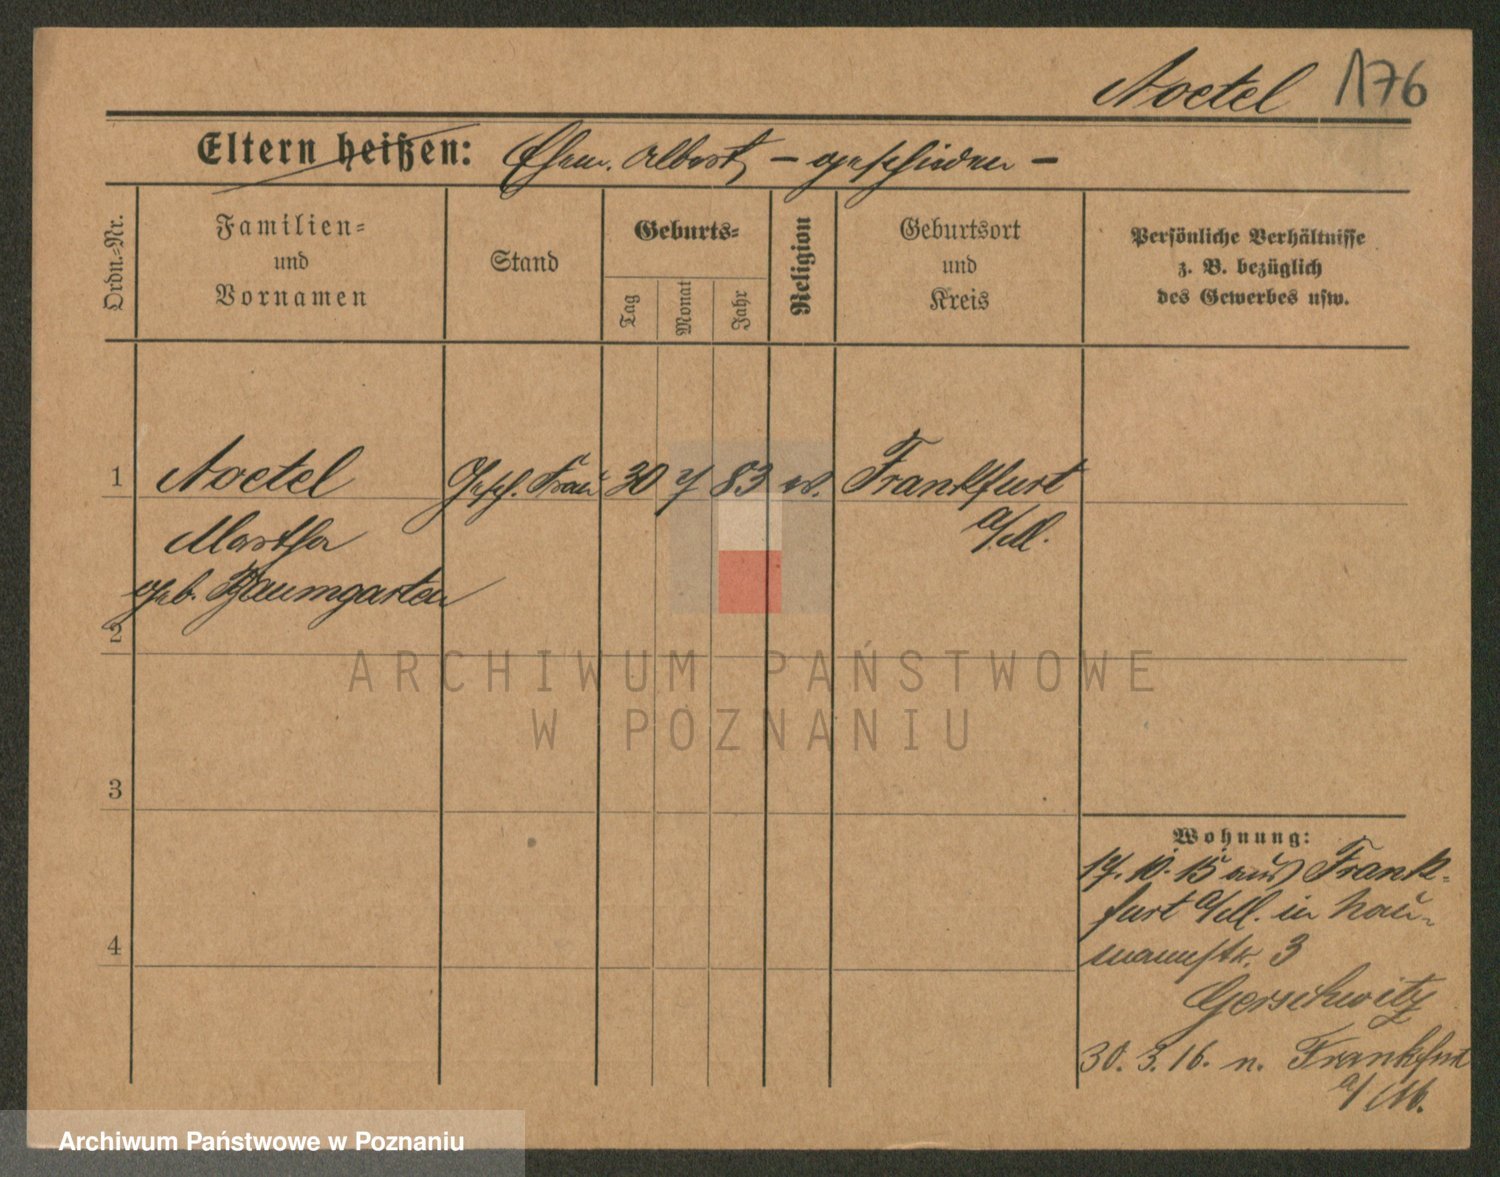 Noetel 176
Eltern heißen: Ehem. Albert, – geschieden –
Ordn.-Nr.
Familien-
und
Vornamen
Stand
Geburts-
Tag
Monat
Jahr
Religion
Geburtsort
und
Kreis
Persönliche Verhältnisse
z. B. bezüglich
des Gewerbes usw.
1 Noetel Gesch. Frau 30 7 83 ev. Frankfurt
a/M.
Martha
geb. Baumgarten
2
3
4
Wohnung:
17. 10. 15 aus Frank-
furt a/M. in Nau-
mannstr. 3
Gerschwitz
30. 3. 16. n. Frankfurt
a/M.
ARCHIWUM PAŃSTWOWE
W POZNANIU
Archiwum Państwowe w Poznaniu